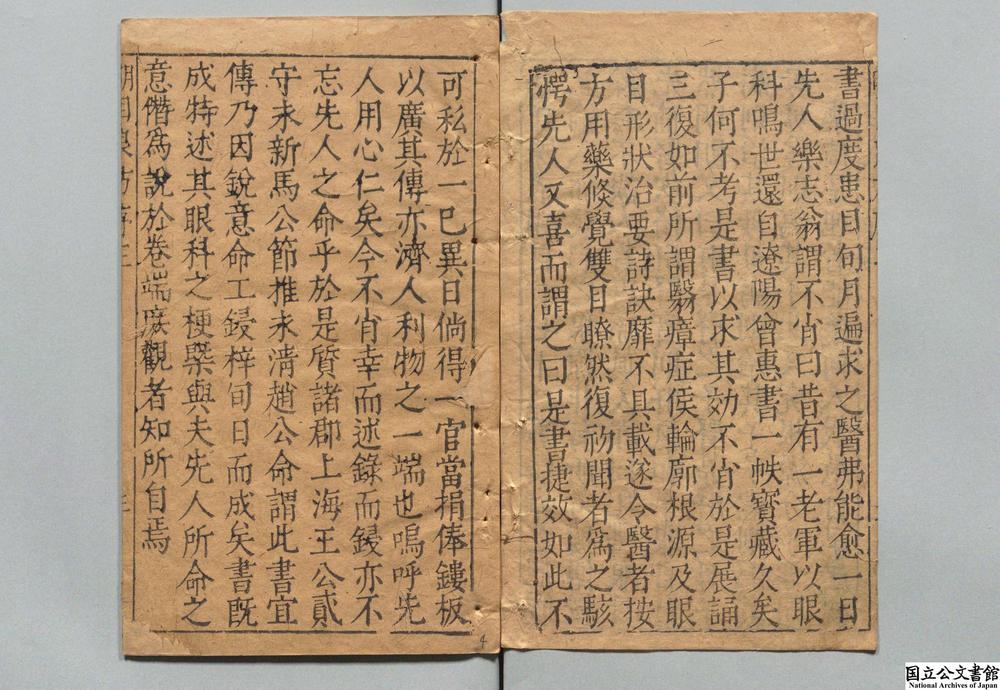 書過度患目旬月遍求之醫弗能愈一日
先人樂志翁謂不肖曰昔有一老軍以眼
科鳴世還自遼陽曾惠書一帙寳藏久矣
子何不考是書以求其効不肖於是展誦
三復如前所謂翳瘴症侯輪廓根源及眼
目形狀治要詩訣靡不具載遂令醫者按
方用藥倐覺雙目瞭然復初聞者爲之駭
愕先人又喜而謂之曰是書捷效如此不
可私於一己異日倘得一官當捐俸鏤板
以廣其傳亦濟人利物之一端也嗚呼先
人用心仁矣今不肖幸而述錄而鋟亦不
忘先人之命乎於是質諸郡上海王公貳
守未新馬公節推未清趙公命謂此書宜
傳乃因銳意命工鋟梓旬日而成矣書旣
成特述其眼科之梗槩與夫先人所命之
意僭爲說於卷端庶觀者知所自焉
国立公文書館
National Archives of Japan